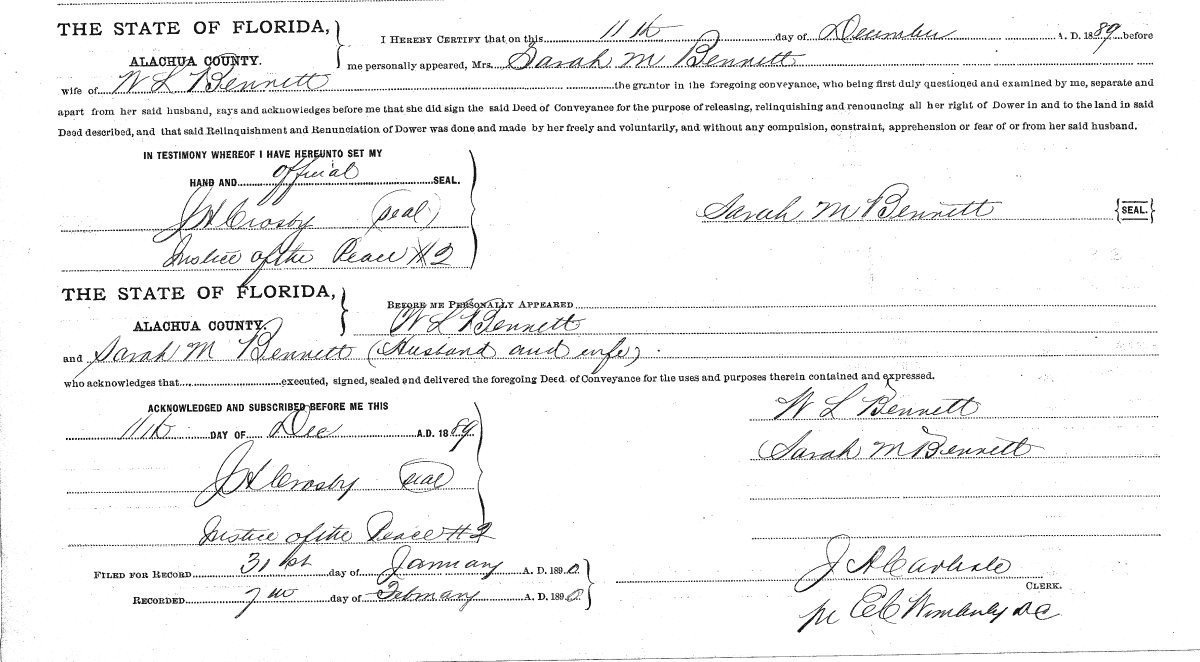 THE STATE OF FLORIDA,
ALACHUA COUNTY.
I HEREBY CERTIFY that on this 11th day of December A. D. 1889 before
me personally appeared, Mrs. Sarah M Bennett
wife of W L Bennett the grantor in the foregoing conveyance, who being first duly questioned and examined by me, separate and
apart from her said husband, says and acknowledges before me that she did sign the said Deed of Conveyance for the purpose of releasing, relinquishing and renouncing all her right of Dower in and to the land in said
Deed described, and that said Relinquishment and Renunciation of Dower was done and made by her freely and voluntarily, and without any compulsion, constraint, apprehension or fear of or from her said husband.
IN TESTIMONY WHEREOF I HAVE HEREUNTO SET MY
HAND AND official SEAL.
J H Crosby (seal)
Sarah M Bennett {SEAL.}
Justice of the Peace #2
THE STATE OF FLORIDA,
ALACHUA COUNTY.
BEFORE ME PERSONALLY APPEARED
W L Bennett
and Sarah M Bennett (Husband and wife)
who acknowledges that executed, signed, sealed and delivered the foregoing Deed of Conveyance for the uses and purposes therein contained and expressed.
ACKNOWLEDGED AND SUBSCRIBED BEFORE ME THIS
11th DAY OF Dec A.D. 1889
W L Bennett
Sarah M Bennett
J H Crosby (seal)
Justice of the Peace #2
FILED FOR RECORD 31st day of January A. D. 1890.
RECORDED 7th day of February A. D. 1890.
J A Carlisle
CLERK.
pr E C Wimberly DC